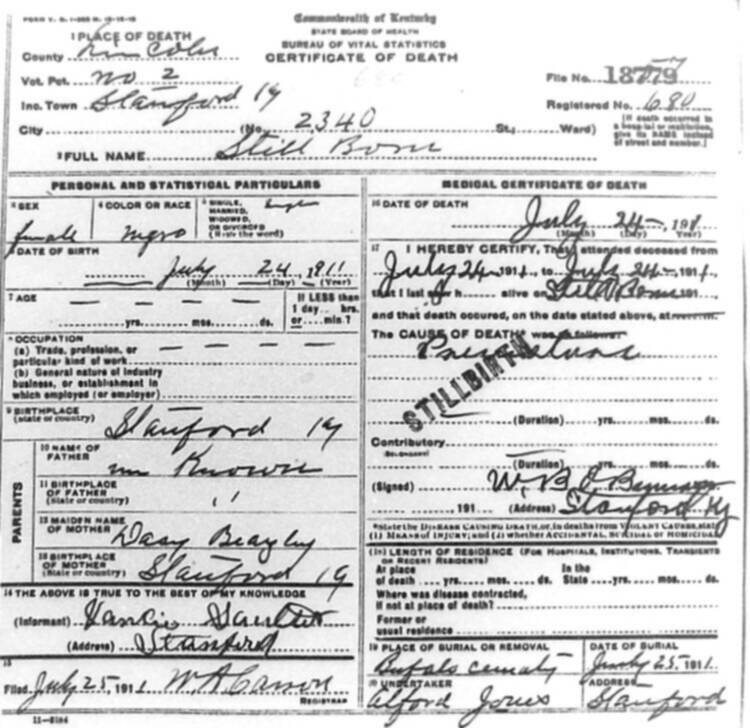 FORM V. S. 1-
Commonwealth of Kentucky
STATE BOARD OF HEALTH
BUREAU OF VITAL STATISTICS
CERTIFICATE OF DEATH
1 PLACE OF DEATH
County Lincoln
Vot. Pct. No 2
Inc. Town Stanford Ky
City (No. 2340 St.; Ward)
File No. 18779
Registered No. 680
[If death occurred in a hospital or institution, give its NAME instead of street and number.]
2 FULL NAME Still Born
PERSONAL AND STATISTICAL PARTICULARS
3 SEX female
4 COLOR OR RACE negro
5 SINGLE, MARRIED, WIDOWED, OR DIVORCED (Write the word) single
6 DATE OF BIRTH
July 24, 1911
(Month) (Day) (Year)
7 AGE
yrs. mos. ds.
If LESS than 1 day hrs. or min.?
8 OCCUPATION
(a) Trade, profession, or particular kind of work
(b) General nature of industry business, or establishment in which employed (or employer)
9 BIRTHPLACE (State or country) Stanford Ky
PARENTS
10 NAME OF FATHER un Known
11 BIRTHPLACE OF FATHER (State or country) "
12 MAIDEN NAME OF MOTHER Dasy
13 BIRTHPLACE OF MOTHER (State or country) Stanford Ky
14 THE ABOVE IS TRUE TO THE BEST OF MY KNOWLEDGE
(Informant)
(Address) Stanford
15
Filed July 25, 1911 W. A. Carson
REGISTRAR
11-5184
MEDICAL CERTIFICATE OF DEATH
16 DATE OF DEATH
July 24-, 191
(Month) (Day) (Year)
17 I HEREBY CERTIFY, That I attended deceased from
July 24- 1911 to July 24-, 1911
that I last saw h alive on Still Born 191
and that death occured, on the date stated above, at
The CAUSE OF DEATH* was as follows:
Premature
STILLBIRTH
(Duration) yrs. mos. ds.
Contributory
(SECONDARY)
(Duration) yrs. mos. ds.
(Signed) W. B. O
191 (Address) Stanford Ky
*State the DISEASE CAUSING DEATH, or, in deaths from VIOLENT CAUSES, state (1) MEANS OF INJURY; and (2) whether ACCIDENTAL, SUICIDAL or HOMICIDAL
18 LENGTH OF RESIDENCE (FOR HOSPITALS, INSTITUTIONS, TRANSIENTS OR RECENT RESIDENTS)
At place of death yrs. mos. ds. In the State yrs. mos. ds.
Where was disease contracted, if not at place of death?
Former or usual residence
19 PLACE OF BURIAL OR REMOVAL
Buffalo cemetery
DATE OF BURIAL
July 25, 1911
20 UNDERTAKER
Alford Jones
ADDRESS
Stanford